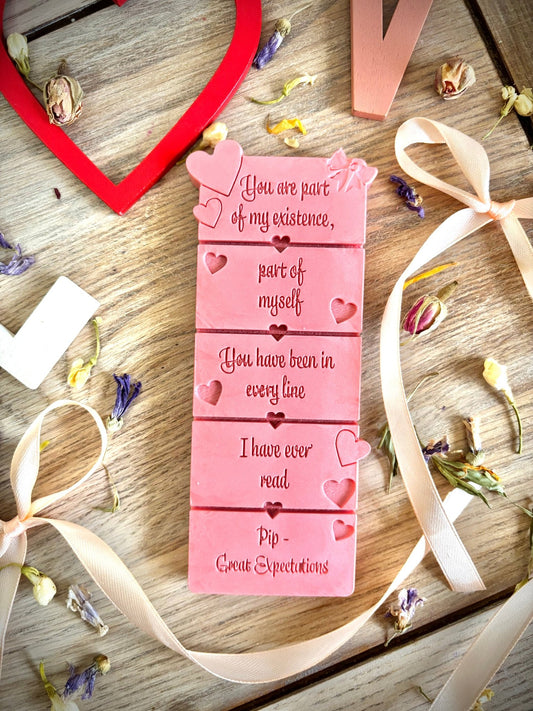 You are part
of my existence,
part of
myself
You have been in
every line
I have ever
read
Pip -
Great Expectations